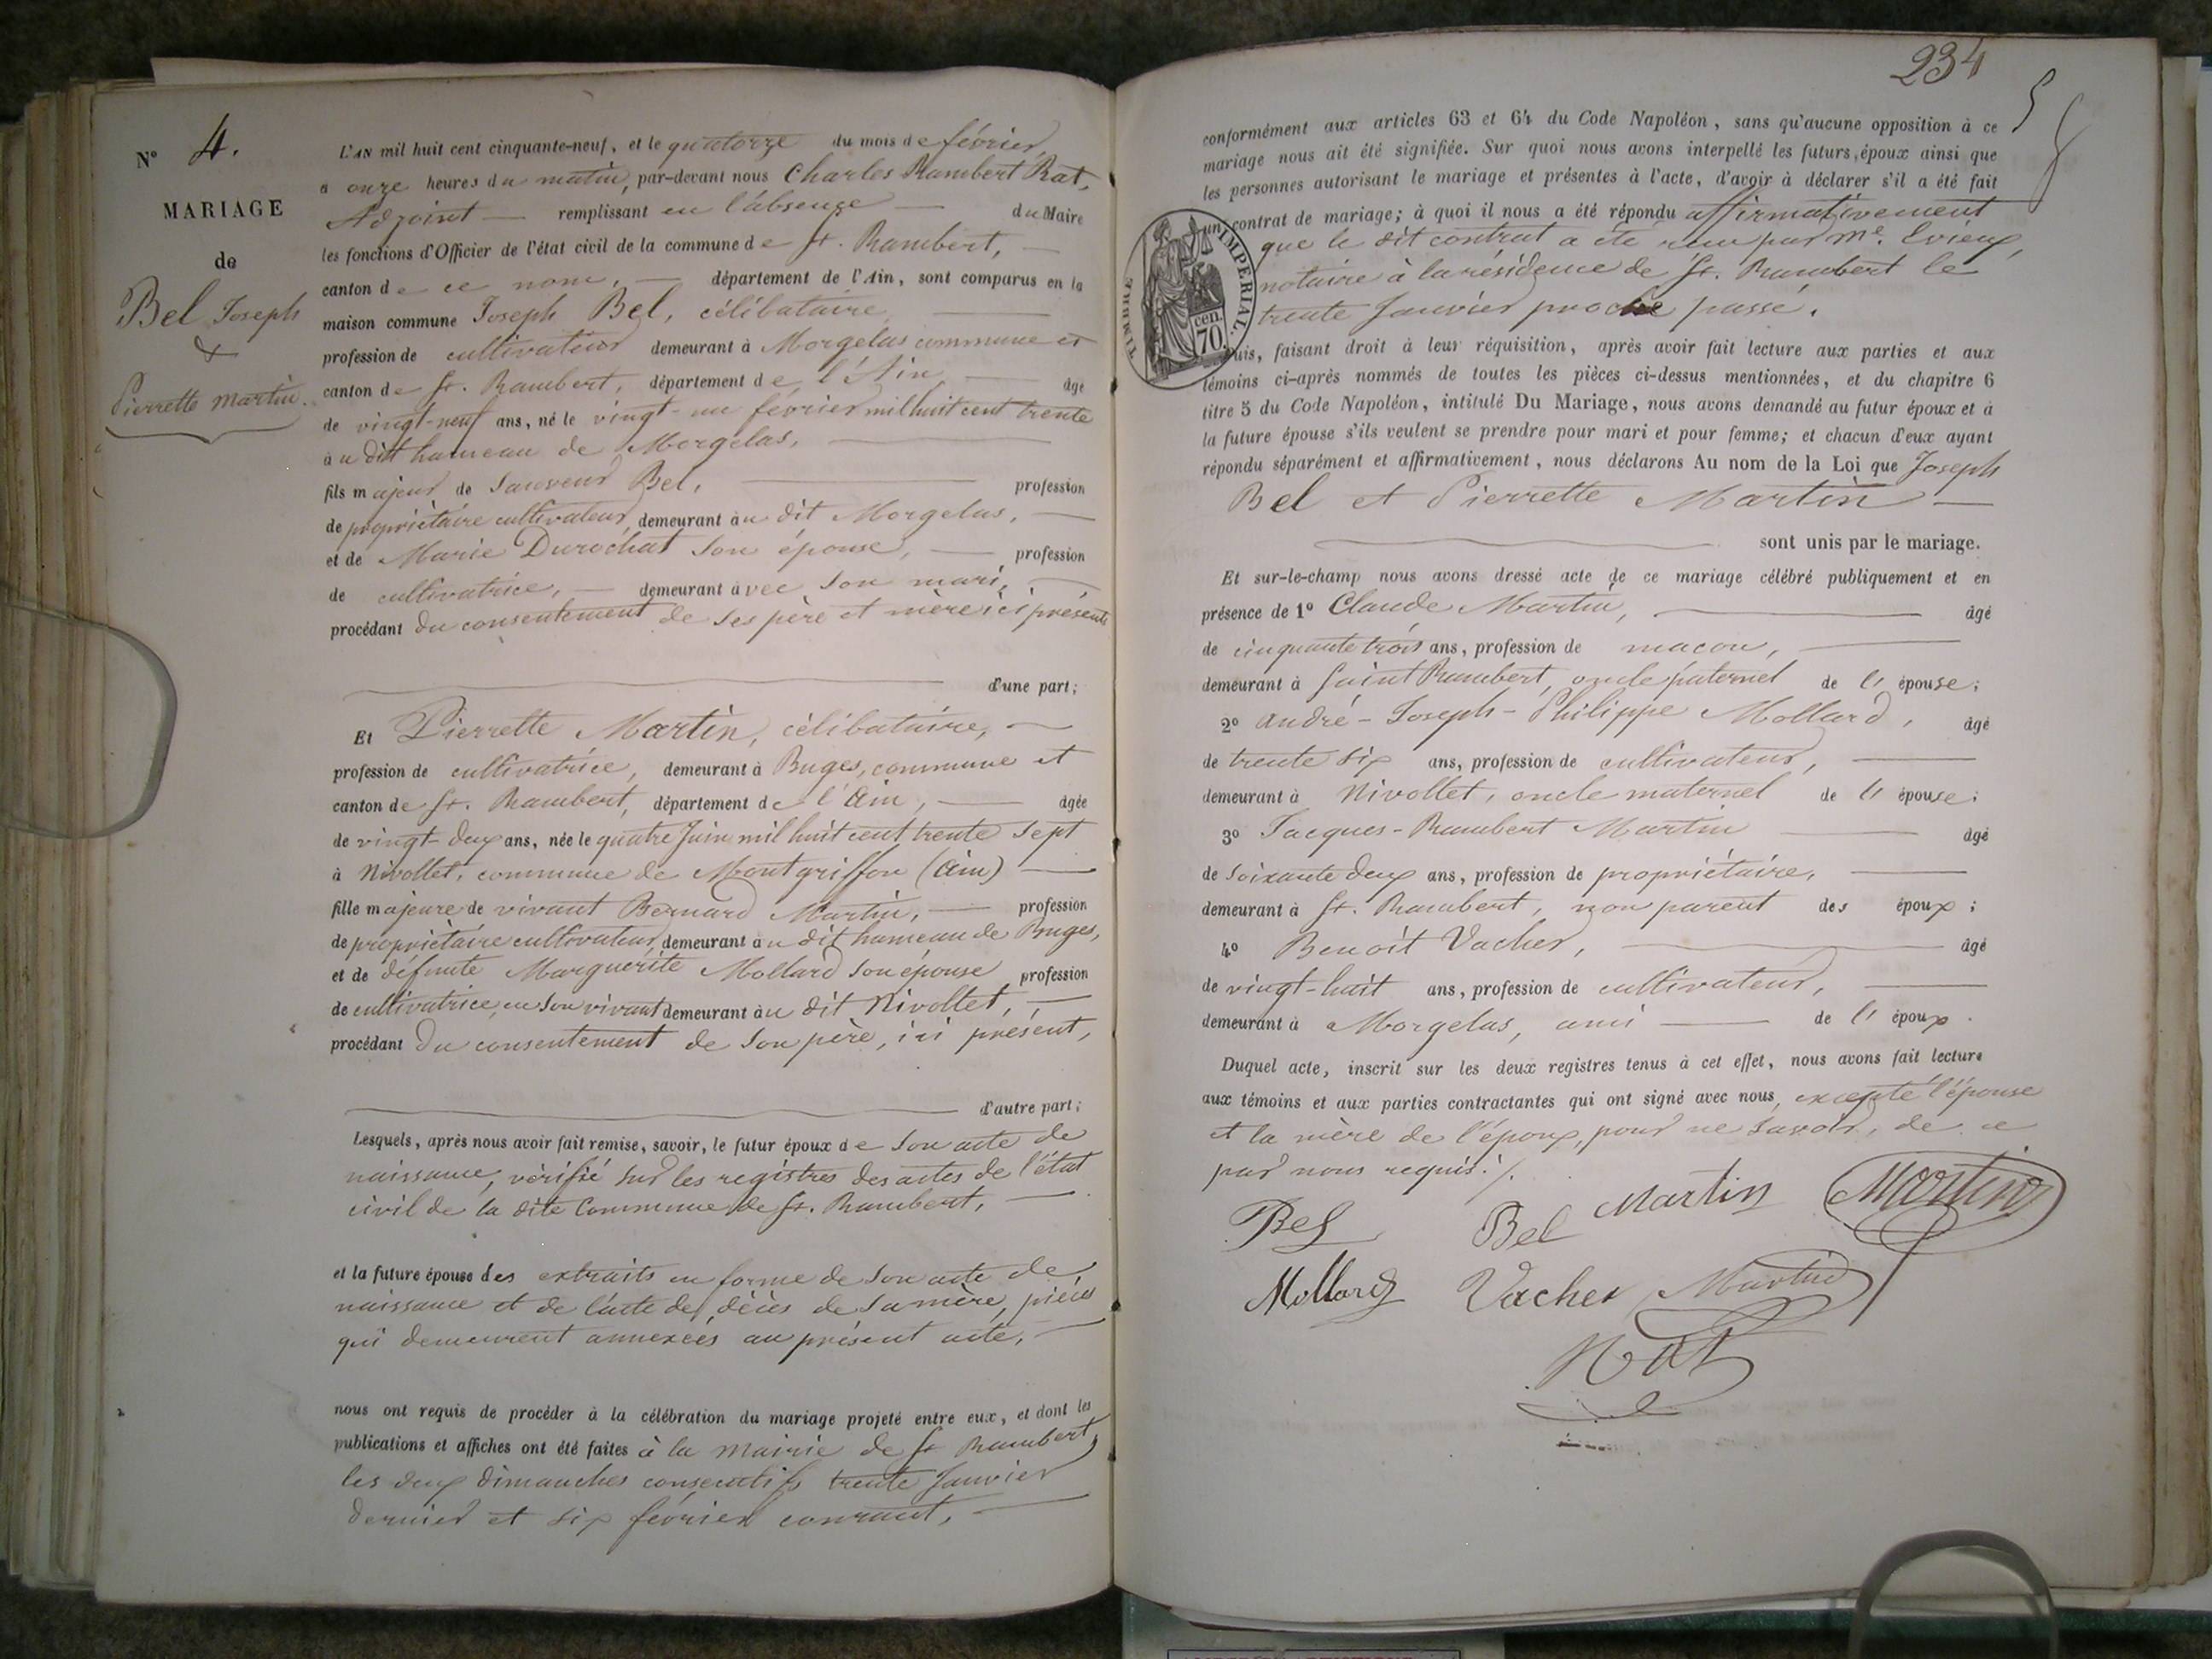 N° 4.
MARIAGE
de
Bel Joseph
&
Pierrette Martin.
L'AN mil huit cent cinquante-neuf, et le quatorze du mois de février,
a onze heures du matin, par-devant nous Charles Rambert Rat,
Adjoint — remplissant en l'absence — du Maire
les fonctions d'Officier de l'état civil de la commune de St. Rambert, —
canton de ce nom, — département de l'Ain, sont comparus en la
maison commune Joseph Bel, célibataire, —
profession de cultivateur demeurant à Morgelas commune et
canton de St. Rambert, département de l'Ain — âgé
de vingt-neuf ans, né le vingt-un février mil huit cent trente
au dit hameau de Morgelas, —
fils majeur de Sauveur Bel, — profession
de propriétaire cultivateur, demeurant au dit Morgelas, —
et de Marie Durochat son épouse, — profession
de cultivatrice, — demeurant avec son mari, —
procédant du consentement de ses père et mère ici présents
— d'une part;
Et Pierrette Martin, célibataire, —
profession de cultivatrice, demeurant à Buges, commune et
canton de St. Rambert, département de l'Ain, — âgée
de vingt-deux ans, née le quatre Juin mil huit cent trente sept
à Nivollet, commune de Montgriffon (Ain) —
fille majeure de vivant Bernard Martin, — profession
de propriétaire cultivateur, demeurant au dit hameau de Buges,
et de défunte Marguerite Mollard son épouse profession
de cultivatrice, en son vivant demeurant au dit Nivollet, —
procédant du consentement de son père, ici présent,
— d'autre part;
Lesquels, après nous avoir fait remise, savoir, le futur époux de son acte de
naissance, vérifié sur les registres des actes de l'état
civil de la dite Commune de St. Rambert, —
et la future épouse des extraits en forme de son acte de
naissance et de l'acte de décès de sa mère, pièces
qui demeurent annexées au présent acte, —
nous ont requis de procéder à la célébration du mariage projeté entre eux, et dont les
publications et affiches ont été faites à la Mairie de St Rambert,
les deux dimanches consecutifs trente Janvier
dernier et six février courant, —
234
conformément aux articles 63 et 64 du Code Napoléon, sans qu'aucune opposition à ce
mariage nous ait été signifiée. Sur quoi nous avons interpellé les futurs époux ainsi que
les personnes autorisant le mariage et présentes à l'acte, d'avoir à déclarer s'il a été fait
un contrat de mariage; à quoi il nous a été répondu affirmativement
que le dit contrat a été reçu par Me. Evieux,
notaire à la résidence de St. Rambert le
trente Janvier proche passé.
TIMBRE IMPÉRIAL.
70 cen.
Puis, faisant droit à leur réquisition, après avoir fait lecture aux parties et aux
témoins ci-après nommés de toutes les pièces ci-dessus mentionnées, et du chapitre 6
titre 5 du Code Napoléon, intitulé Du Mariage, nous avons demandé au futur époux et à
la future épouse s'ils veulent se prendre pour mari et pour femme; et chacun d'eux ayant
répondu séparément et affirmativement, nous déclarons Au nom de la Loi que Joseph
Bel et Pierrette Martin —
— sont unis par le mariage.
Et sur-le-champ nous avons dressé acte de ce mariage célébré publiquement et en
présence de 1° Claude Martin, — âgé
de cinquante trois ans, profession de macon, —
demeurant à Saint Rambert, oncle paternel de l' épouse;
2° André-Joseph-Philippe Mollard, âgé
de trente six ans, profession de cultivateur, —
demeurant à Nivollet, oncle maternel de l' épouse;
3° Jacques-Rambert Martin — âgé
de soixante deux ans, profession de propriétaire, —
demeurant à St. Rambert, non parent des époux;
4° Benoit Vacher, — âgé
de vingt-huit ans, profession de cultivateur, —
demeurant à Morgelas, ami — de l' époux.
Duquel acte, inscrit sur les deux registres tenus à cet effet, nous avons fait lecture
aux témoins et aux parties contractantes qui ont signé avec nous, excepté l'épouse
et la mère de l'époux, pour ne savoir, de ce
par nous requis./.
Bel Bel Martin Martin
Mollard Vacher Martin
Rat